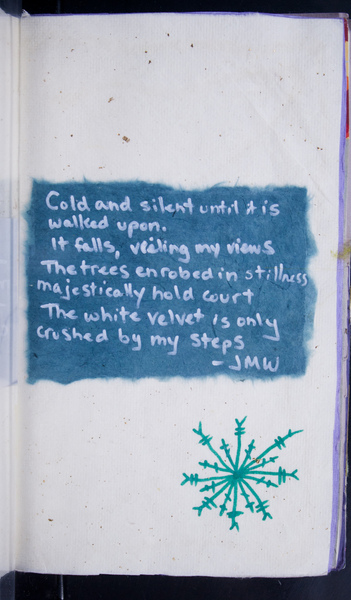 Cold and silent until it is
walked upon.
It falls, veiling my views
The trees enrobed in stillness
majestically hold court
The white velvet is only
crushed by my steps
- JMW